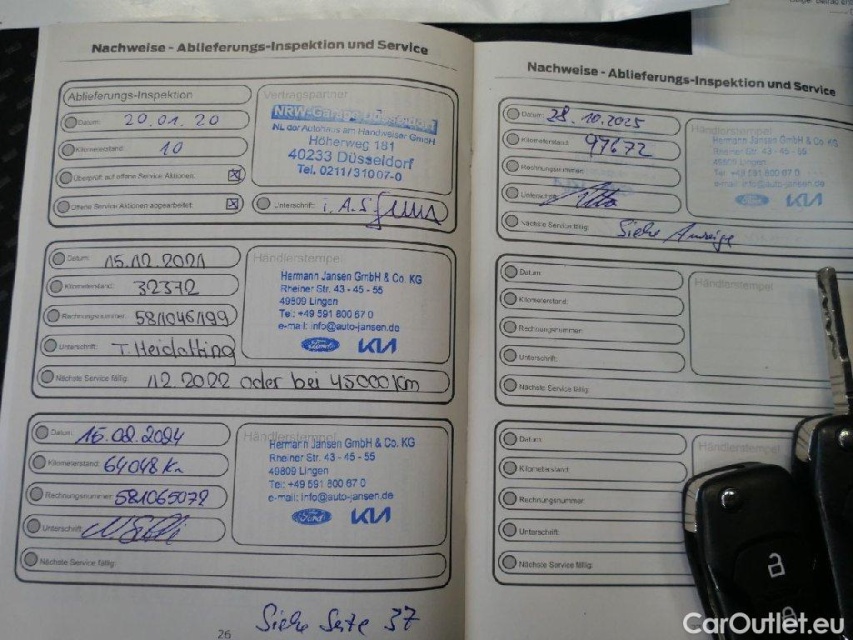 Nachweise - Ablieferungs-Inspektion und Service
Ablieferungs-Inspektion
Datum: 20.01.20
Kilometerstand: 10
Überprüft auf offene Service Aktionen:
Offene Service Aktionen abgearbeitet:
Vertragspartner
NL der Autohaus am Handweiser GmbH
Höherweg 181
40233 Düsseldorf
Tel. 0211/31007-0
Unterschrift: i.A.
Datum: 15.12.2021
Kilometerstand: 32372
Rechnungsnummer: 581046199
Unterschrift:
Nächste Service fällig: 12.2022 oder bei 45000km
Händlerstempel
Hermann Jansen GmbH & Co. KG
Rheiner Str. 43 - 45 - 55
49809 Lingen
Tel: +49 591 800 67 0
e-mail: info@auto-jansen.de
Ford KIA
Datum: 16.02.2024
Kilometerstand: 64048 Km
Rechnungsnummer: 581065072
Unterschrift:
Nächste Service fällig:
Händlerstempel
Hermann Jansen GmbH & Co. KG
Rheiner Str. 43 - 45 - 55
49809 Lingen
Tel: +49 591 800 67 0
e-mail: info@auto-jansen.de
Ford KIA
Siehe Seite 37
26
Nachweise - Ablieferungs-Inspektion und Service
Datum: 28.10.2025
Kilometerstand: 97672
Rechnungsnummer:
Unterschrift:
Nächste Service fällig: Siehe Anzeige
Händlerstempel
Hermann Jansen GmbH & Co. KG
Rheiner Str. 43 - 45 - 55
49809 Lingen
Tel: +49 591 800 67 0
e-mail: info@auto-jansen.de
Ford KIA
Datum:
Kilometerstand:
Rechnungsnummer:
Unterschrift:
Nächste Service fällig:
Händlerstempel
Datum:
Kilometerstand:
Rechnungsnummer:
Unterschrift:
Nächste Service fällig:
Händlerstempel
CarOutlet.eu